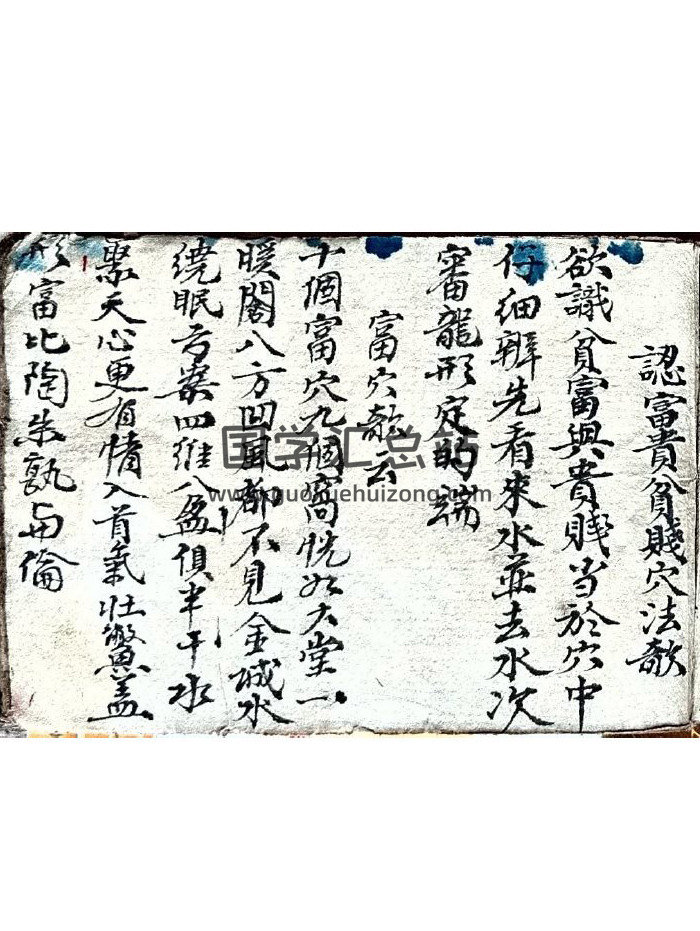 認富貴貧賤穴法歌
欲識貧富與貴賤当於穴中
仔細辨先看來水並去水次
審龍形定的端
富穴歌云
十個富穴九個窩恍如大堂一
暖閣八方凹風都不見金城水
繞眠弓案四維八 半千水
聚天心更有情入首氣壯鱉盖
形富比陶朱孰与倫
国学汇总
www.guoxuehuizong.com